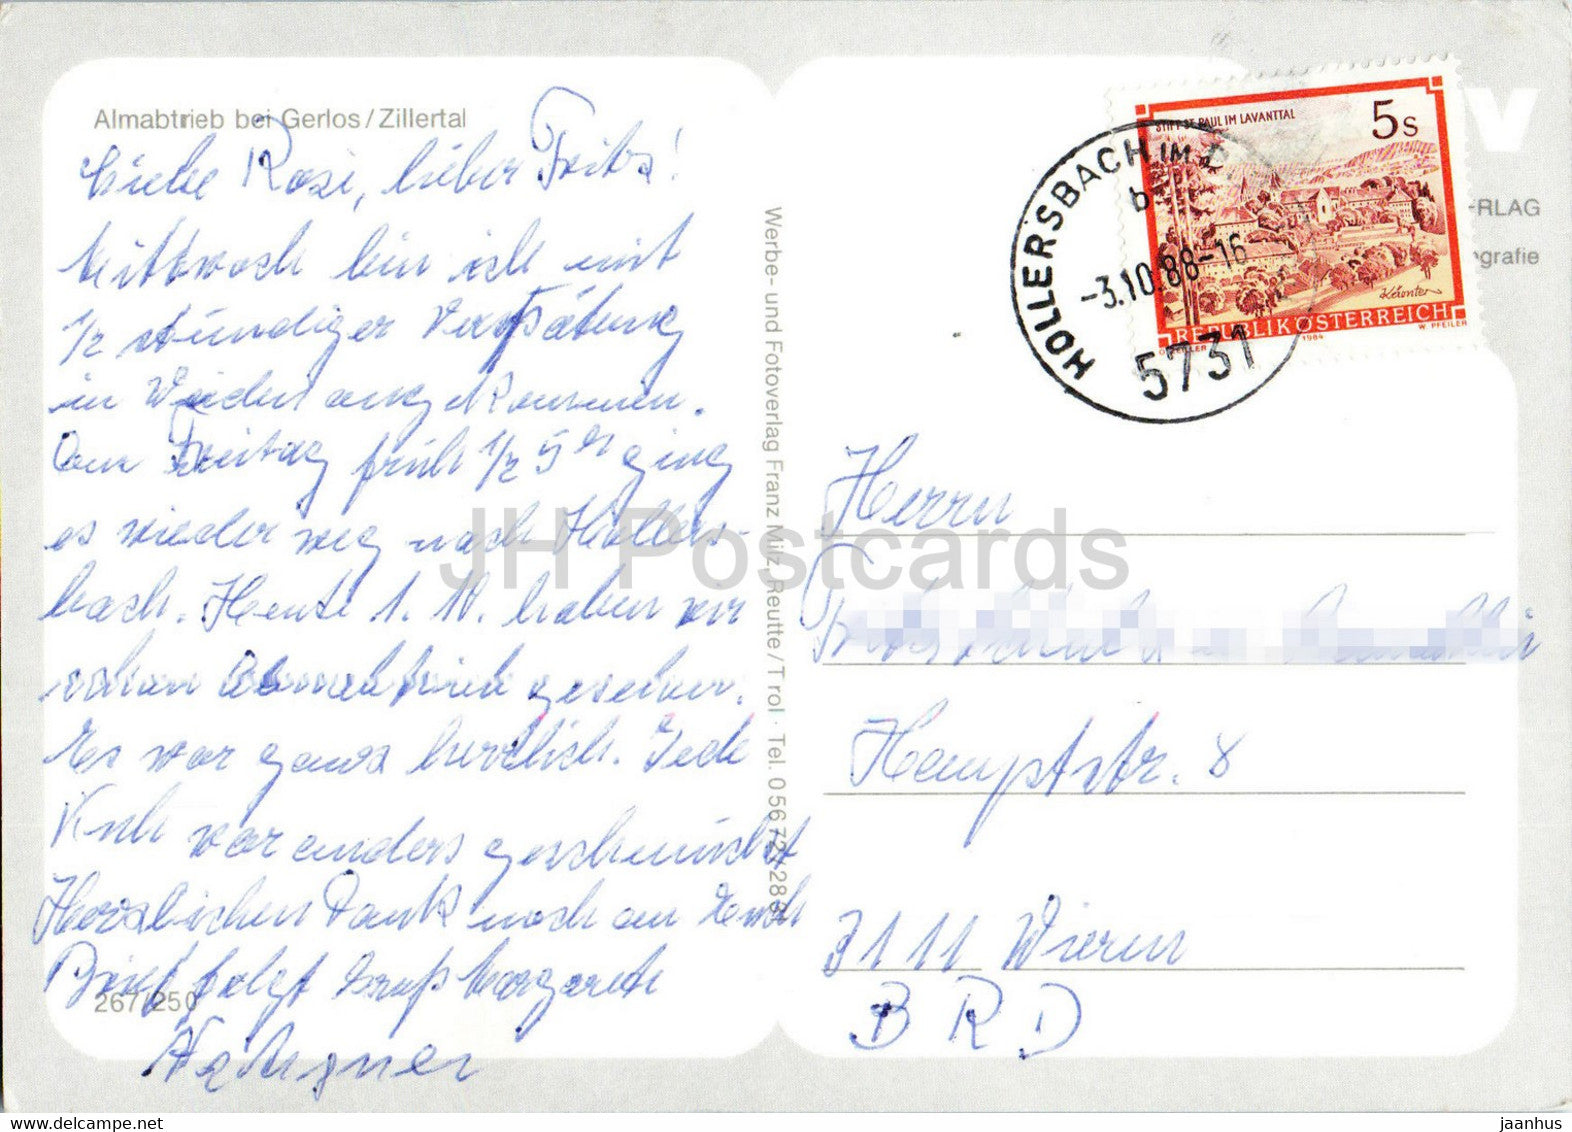 Almabtrieb bei Gerlos/Zillertal
Liebe Rosi, lieber Fritz!
Mittwoch bin ich mit
1/2 stündiger Verspätung
in angekommen.
Am Freitag früh 1/2 5 ging
es wieder weg nach Hollers-
bach. Heute 1.10. haben wir
schon Almabtrieb gesehen.
Es war ganz herzlich. Jede
Kuh war anders geschmückt
Herzlichen Dank noch an Euch
Brief folgt Gruß Margarete
267/250
Werbe- und Fotoverlag Franz Milz, Reutte/Tirol · Tel. 05672/288
STIFT ST. PAUL IM LAVANTTAL
5 s
Kärnten
REPUBLIK ÖSTERREICH
1984
W. PFEILER
HOLLERSBACH IM
b
-3.10.88-16
5731
V
RLAG
grafie
Herrn
Hauptstr. 8
3111 Wieren
BRD
JH Postcards
jaanhus